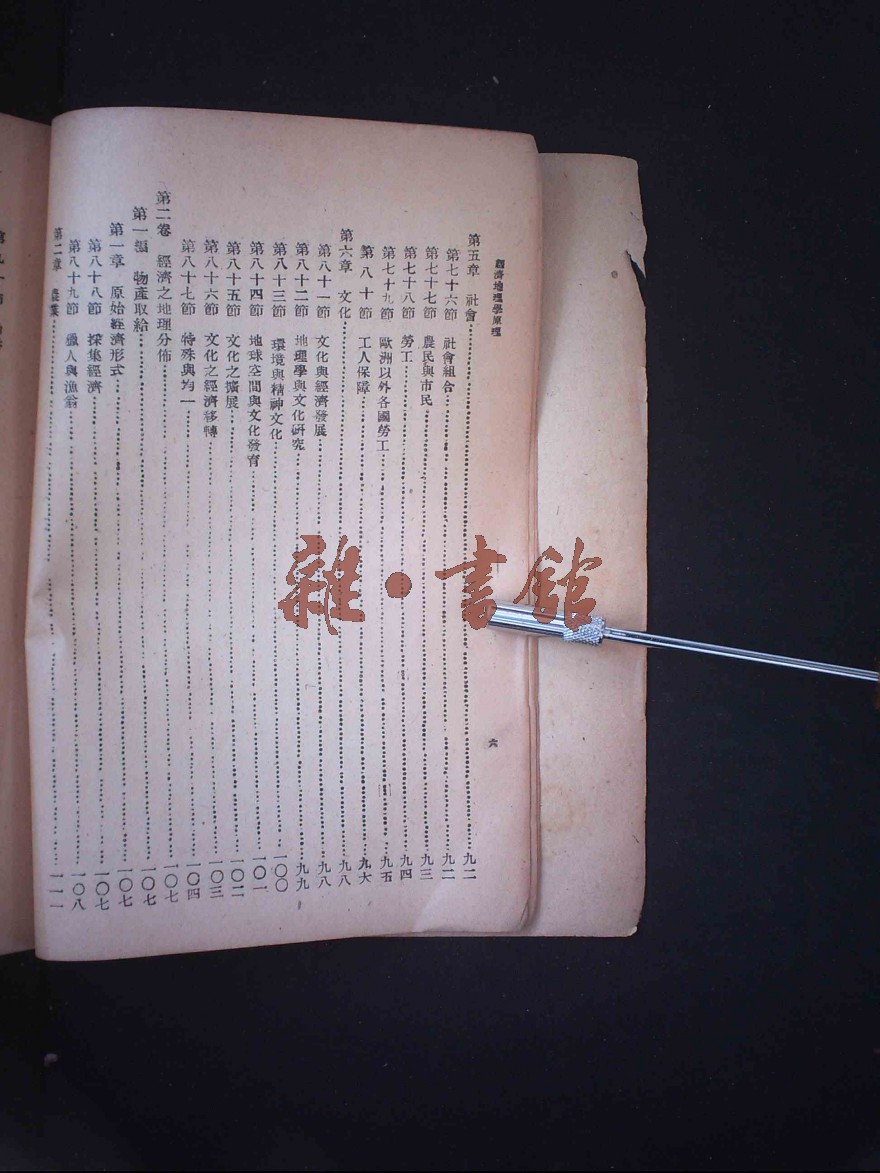 經濟地理學原理
第五章 社會……九二
第七十六節 社會組合……九二
第七十七節 農民與市民……九三
第七十八節 勞工……九四
第七十九節 歐洲以外各國勞工……九五
第八十節 工人保障……九六
第六章 文化……九八
第八十一節 文化與經濟發展……九八
第八十二節 地理學與文化研究……九九
第八十三節 環境與精神文化……一〇〇
第八十四節 地球空間與文化發育……一〇一
第八十五節 文化之擴展……一〇二
第八十六節 文化之經濟移轉……一〇三
第八十七節 特殊與均一……一〇四
第二卷 經濟之地理分佈……一〇七
第一編 物產取給……一〇七
第一章 原始經濟形式……一〇七
第八十八節 採集經濟……一〇七
第八十九節 獵人與漁翁……一〇八
第二章 農業……一一一
六
雜·書館